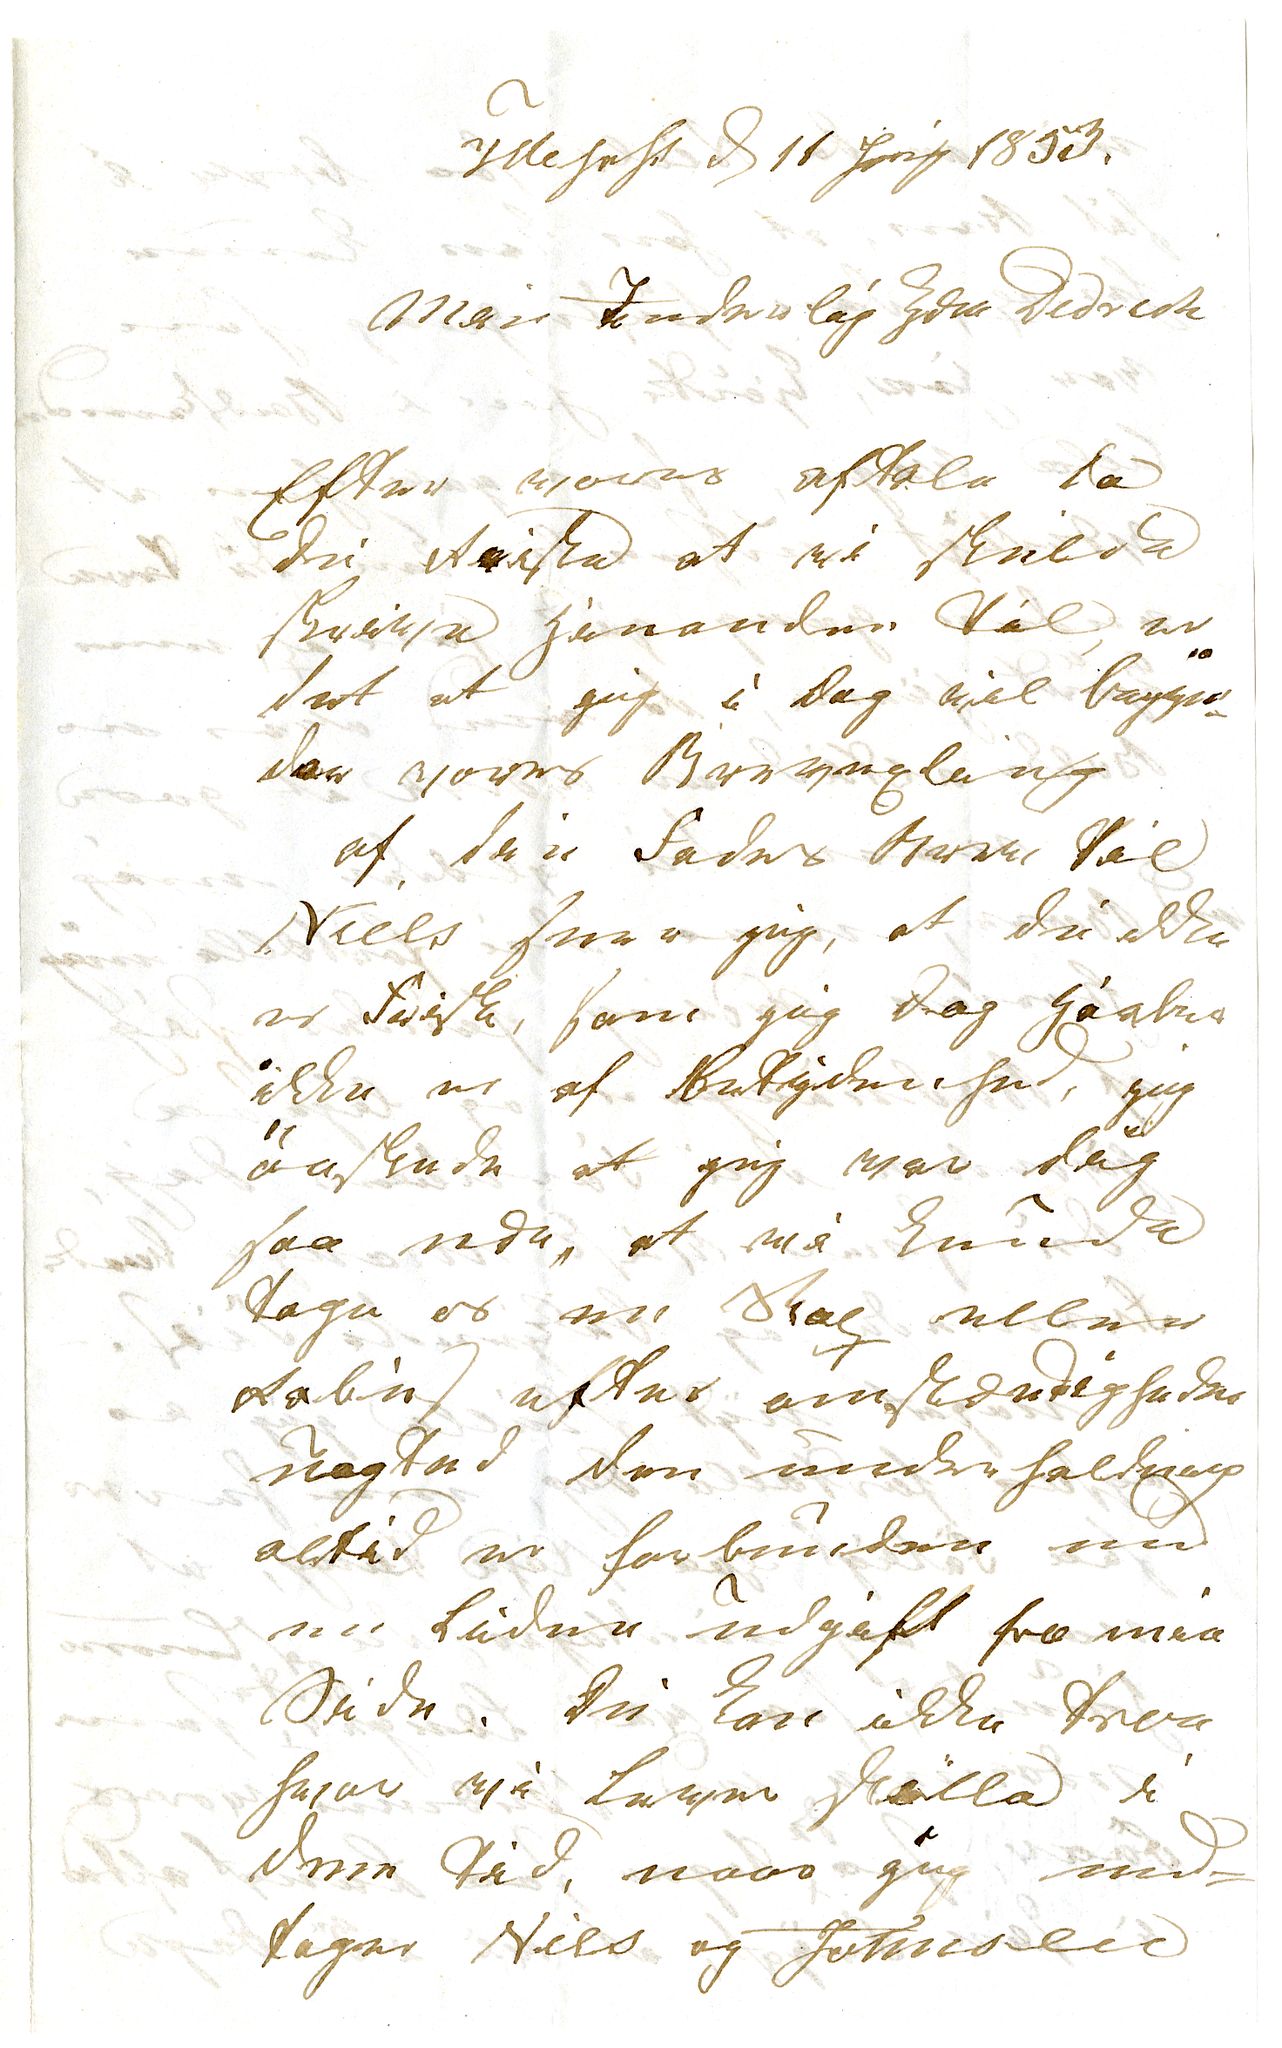 d 11 1853.
Mein Inderlig Kjære Didrech
Efter vores aftale da
du Reiste at vi skulde
skrive Hinanden til, er
det at jeg i dag vil begyn-
der vores Brevvexling
af din Faders Brev til
Niels seer jeg, at du ikke
er Frisk, som jeg dog Haaber
ikke er af Betydenhed, jeg
önskede at jeg var dig
saa nær, at vi kunde
tage os en eller
efter omstændigheder
den underholdning
altid er forbunden med
en Liden udgift fra min
Side. Du kan ikke troe
hvor vi Lever stille i
denne tid, naar jeg und-
tager Niels og Johnsen